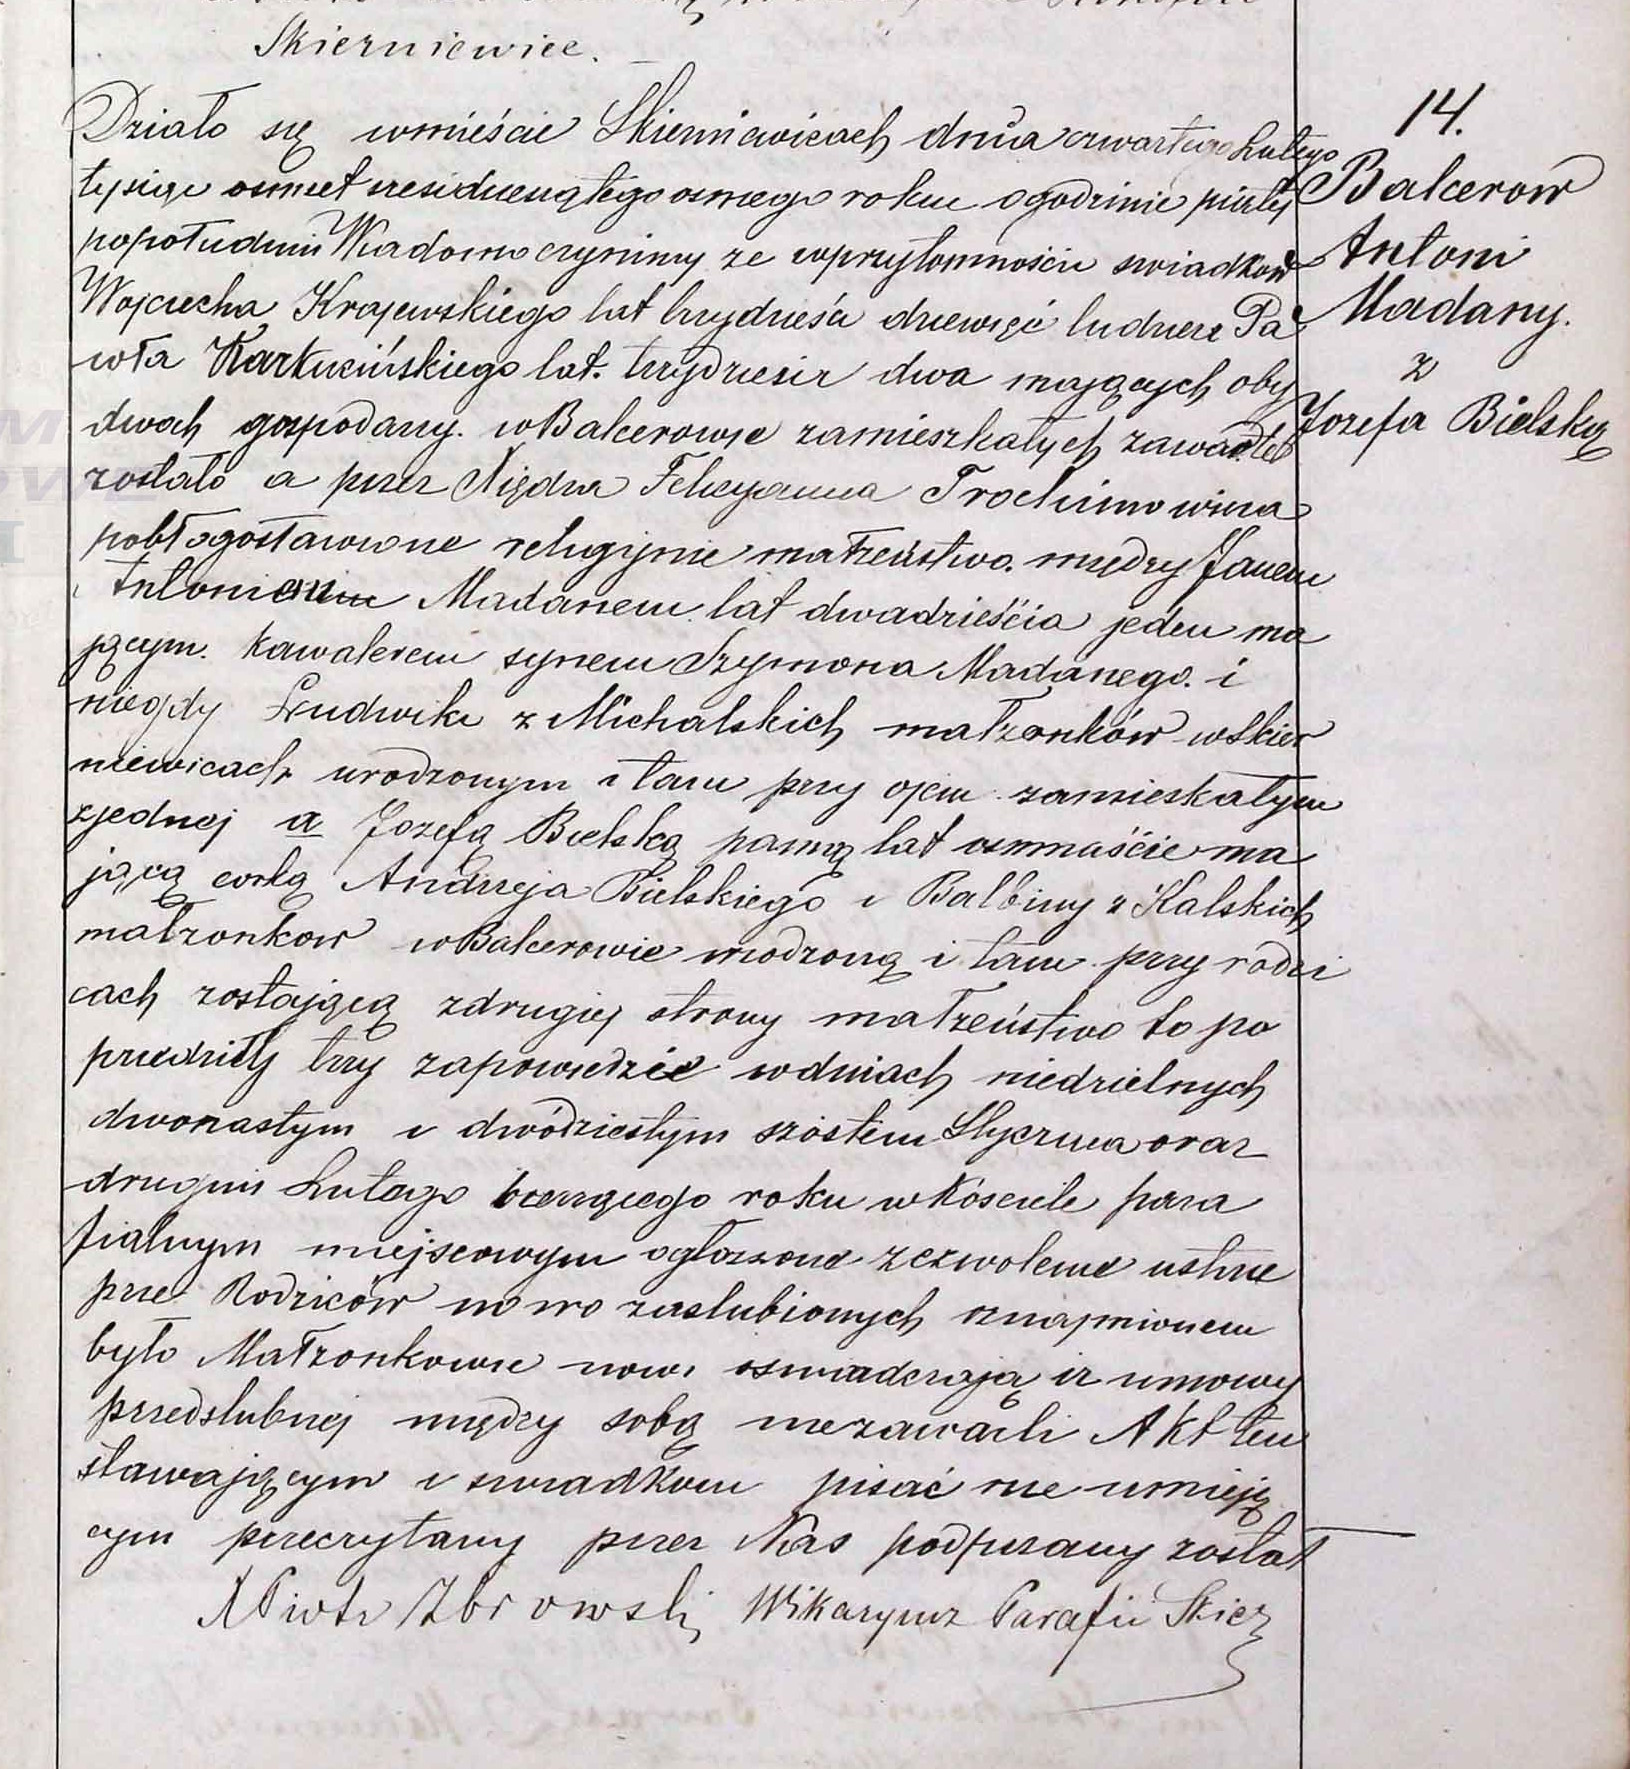 Skierniewice.
Działo się wmieście Skierniewicach dnia czwartego Lutego
tysiąc osmset sześcdziesiątego osmego roku ogodzinie piąty
popołudniu Wiadomo czynimy ze wprzytomności swiadków
Wojciecha Krajewskiego lat trzydzieści dziewięć ludzież Pa
wła lat. trzydziesci dwa mających oby
dwoch gospodarzy. wBalcerowie zamieszkałych zawarte
zostało a przez Xiędza Felicyanna Trochimowicza
pobłogosławione religijnie małżeństwo. między Janem
Antonim Madanem lat dwadzieścia jeden ma
jącym. kawalerem synem Szymona Madanego. i
niegdy Ludwiki z Michalskich małzonków wSkier
niewicach urodzonym i tam przy ojcu zamieskałym
zjednej a Jozefą Bielską panną lat osmnaście ma
jącą corką Andrzeja Bielskiego i Balbiny z Kalskich
małzonkow wBalcerowie urodzoną i tam przy rodzi
cach zostającą zdrugiej strony małżeństwo to po
przedziły trzy zapowiedzie wdniach niedzielnych
dwonastym i dwódziestym szóstem Stycznia oraz
drugim Lutego bierzącego roku wKościele para
fialnym miejscowym ogłoszone zezwolenie ustne
prze Rodziców nowo zaslubionych oznajmionem
było Małzonkowie nowi oswiadczają iz umowy
przedslubnej między sobą niezawarli Akt ten
stawającym i swiadkom pisać nie umieją
cym przeczytany przez Nas podpisany został
X Piotr Zbrowski Wikaryusz Parafii Skier
14.
Balcerow
Antoni
Madany.
z
Jozefa Bielską